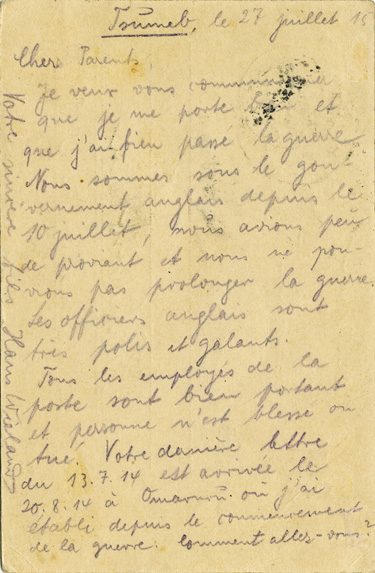 Tsumeb, le 27 juillet 15
Cher Parents,
Je veux vous communiquer
que je me porte bien et
que j'ai bien passe la guerre
Nous sommes sous le gou-
vernement anglais depuis le
10 juillet, nous avions peux
de provant et nous ne pou-
vions pas prolonger la guerre.
Les officiers anglais sont
très polis et galants.
Tous les employés de la
poste sont bien portant
et personne n'est blesse ou
tué. Votre dernière lettre
du 13.7.14 est arrivée le
20.8.14 à Omaruru où j'ai
établi depuis le commencement
de la guerre. Comment allez-vous?
Votre fils Hans Wieland